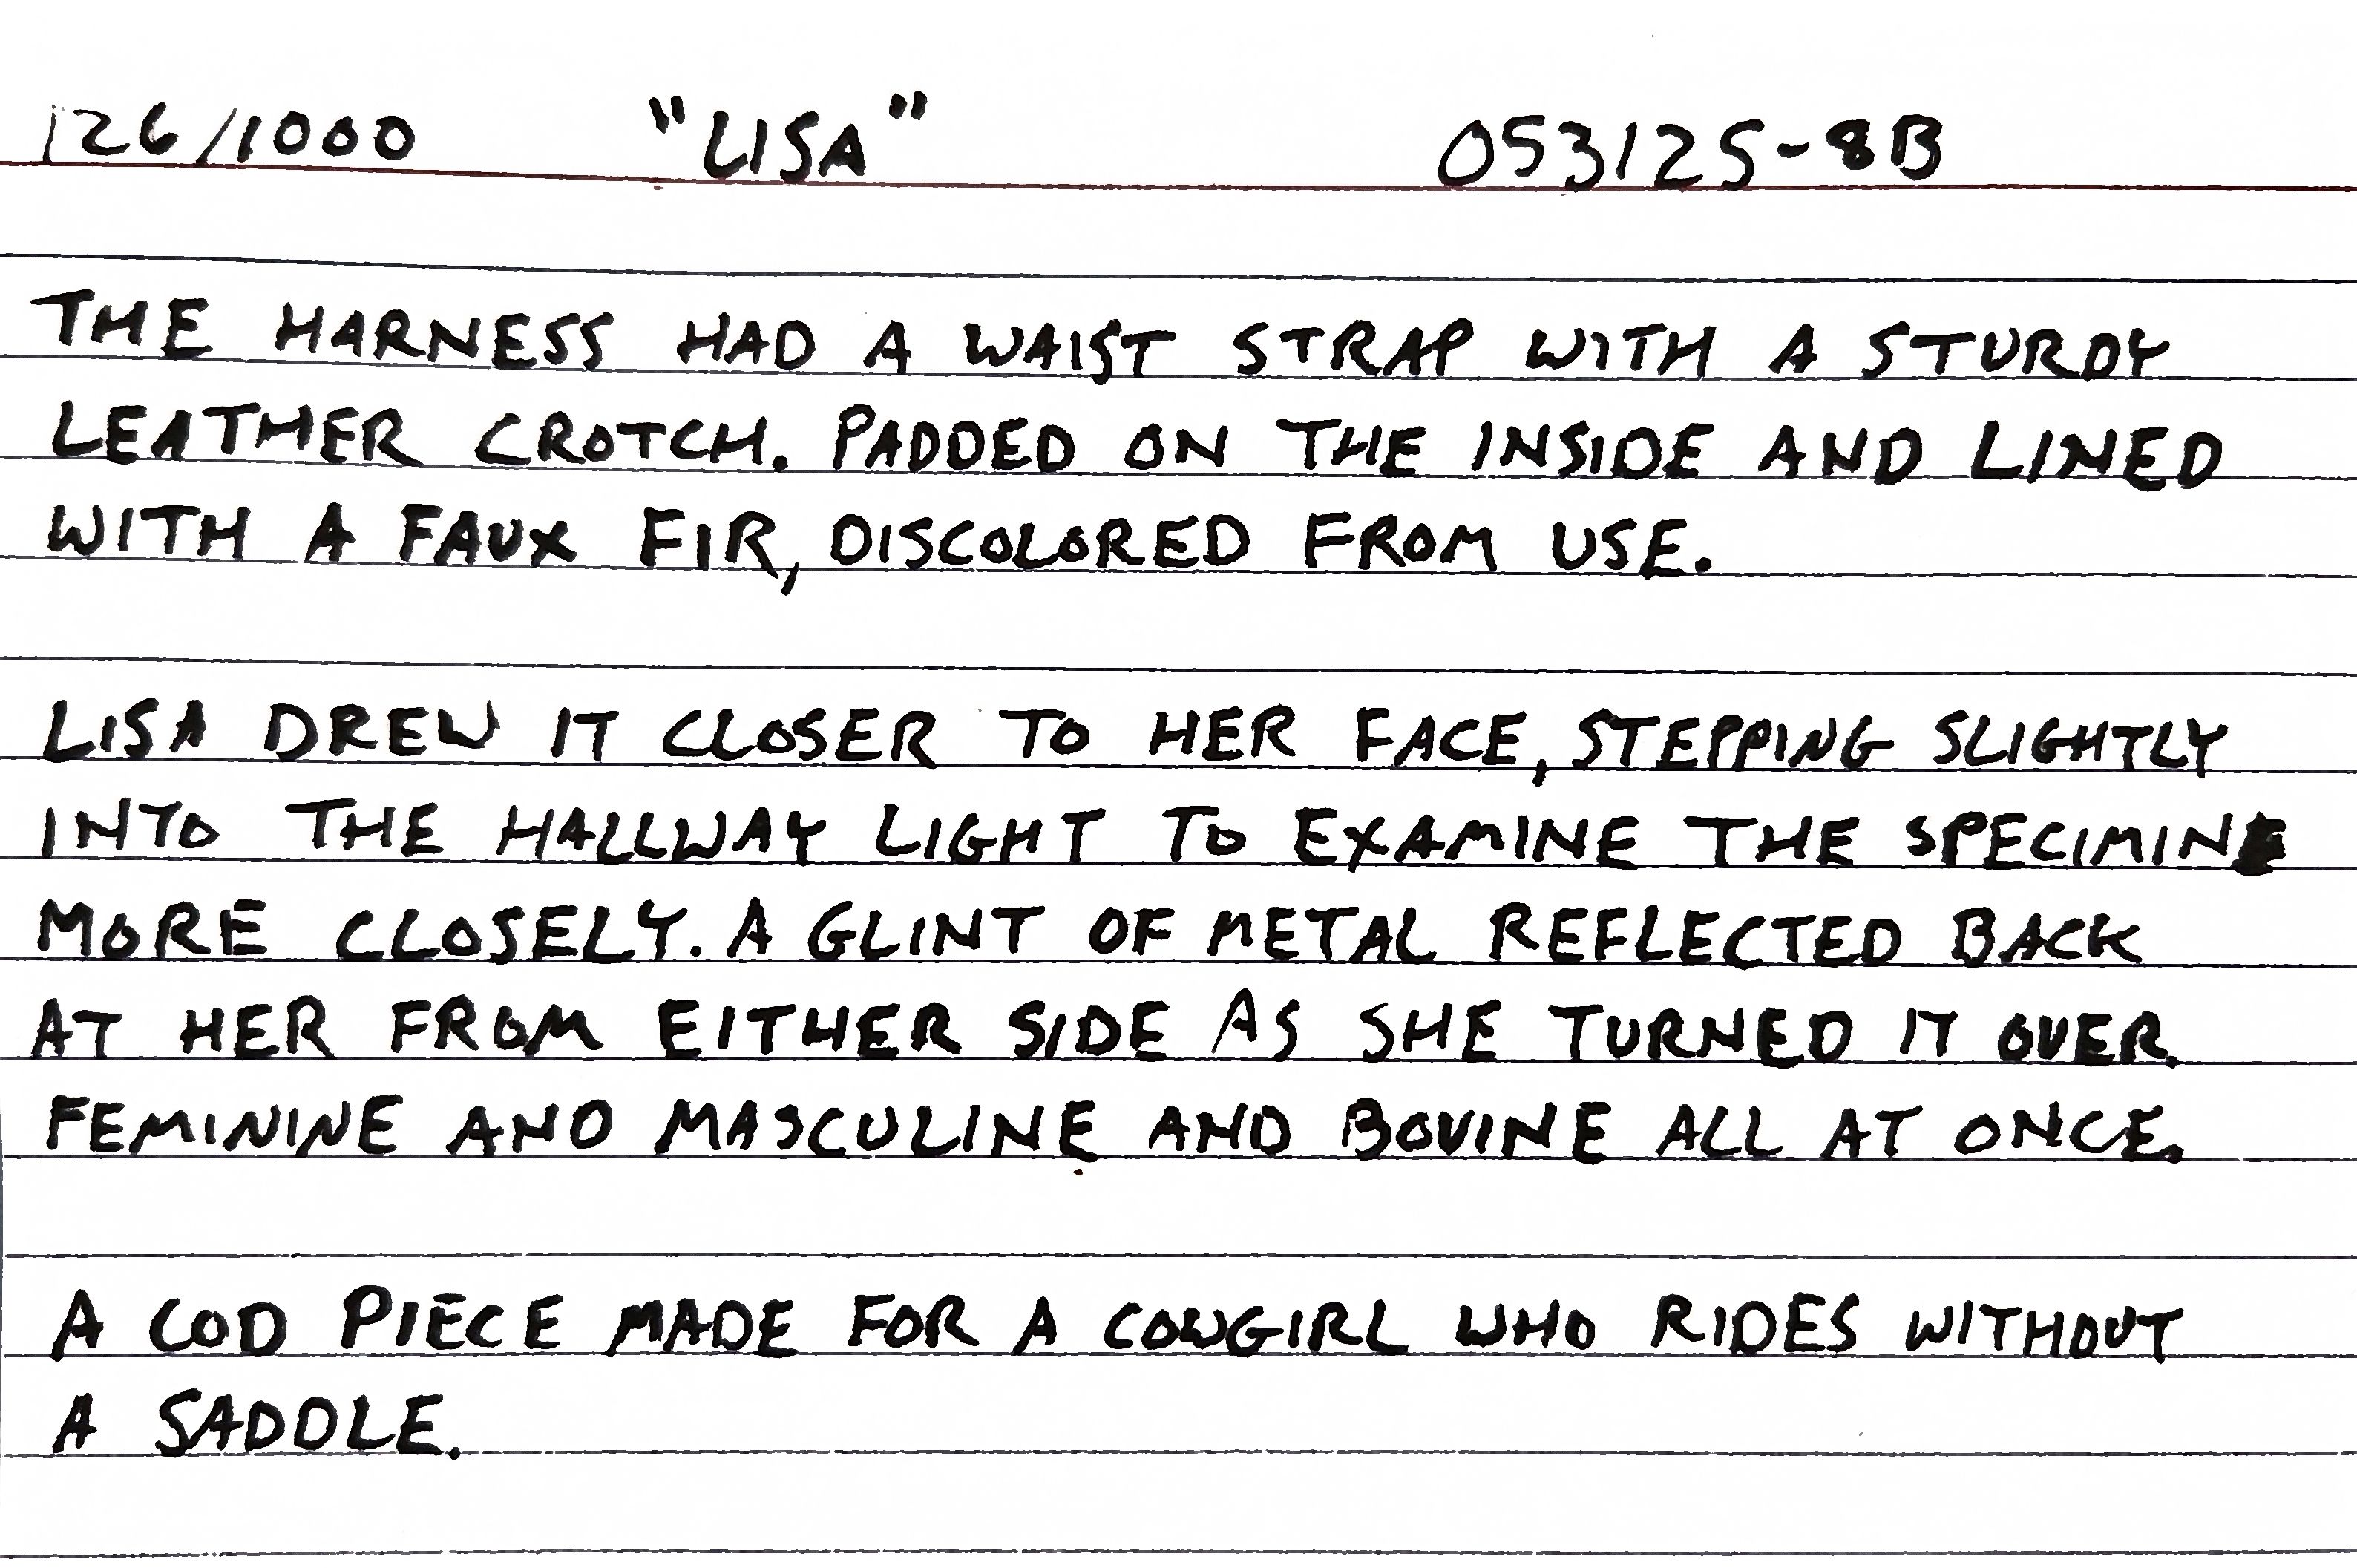 126/1000 "LISA" 053125-8B
THE HARNESS HAD A WAIST STRAP WITH A STURDY
LEATHER CROTCH. PADDED ON THE INSIDE AND LINED
WITH A FAUX FIR, DISCOLORED FROM USE.
LISA DREW IT CLOSER TO HER FACE, STEPPING SLIGHTLY
INTO THE HALLWAY LIGHT TO EXAMINE THE SPECIMIN
MORE CLOSELY. A GLINT OF METAL REFLECTED BACK
AT HER FROM EITHER SIDE AS SHE TURNED IT OVER.
FEMININE AND MASCULINE AND BOVINE ALL AT ONCE.
A COD PIECE MADE FOR A COWGIRL WHO RIDES WITHOUT
A SADDLE.